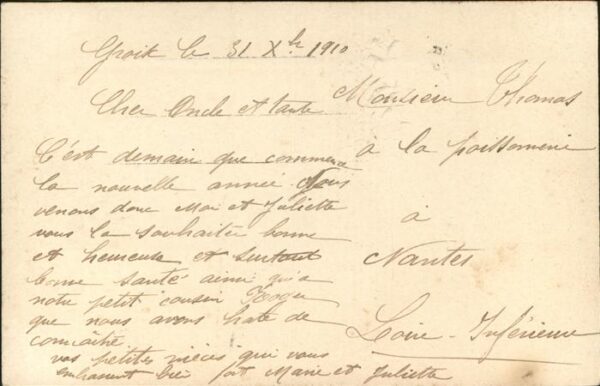 Groix le 31 Xbr 1910
Cher Oncle et tante
C'est demain que commence
la nouvelle année Nous
venons donc Moi et Juliette
vous la souhaitée bonne
et heureuse et surtout
bonne santé ainsi qu'a
notre petit cousin Roger
que nous avons hate de
connaitre
vos petites nièces qui vous
embrassent bien Marie et Juliette
Monsieur Thomas
à la poissonnerie
à
Nantes
Loire-Inférieure